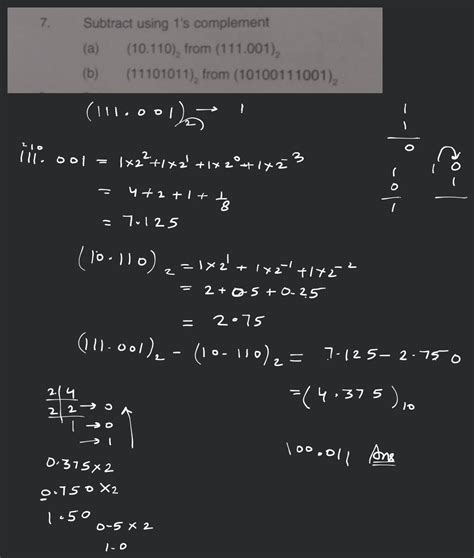 7. Subtract using 1's complement
(a) (10.110)₂ from (111.001)₂
(b) (11101011)₂ from (10100111001)₂
(111.001)₂ → 1
1
1
0
1 0
0 1
1
2 1 0
111.001 = 1×2² + 1×2¹ + 1×2⁰ + 1×2⁻³
= 4+2+1+ 1/8
= 7.125
(10.110)₂ = 1×2¹ + 1×2⁻¹ + 1×2⁻²
= 2+0.5+0.25
= 2.75
(111.001)₂ − (10.110)₂ = 7.125 − 2.750
= (4.375)₁₀
100.011 Ans
2 | 4
2 | 2 → 0
1 → 0
→ 1
0.375×2
0.750×2
1.50
0.5×2
1.0